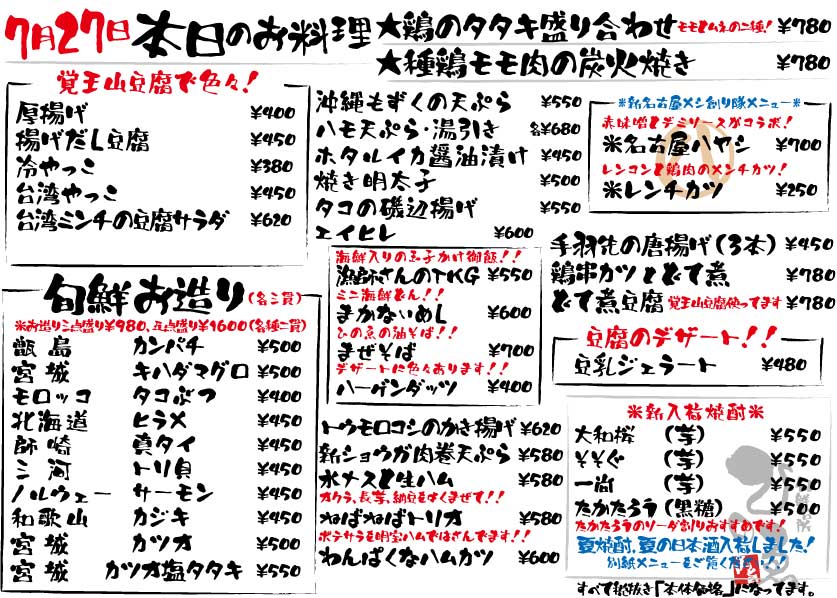 7月27日 本日のお料理
★鶏のタタキ盛り合わせ モモとムネの二種! ¥780
★種鶏モモ肉の炭火焼き ¥780
覚王山豆腐で色々!
厚揚げ ¥400
揚げだし豆腐 ¥450
冷やっこ ¥380
台湾やっこ ¥450
台湾ミンチの豆腐サラダ ¥620
旬鮮お造り(各三貫)
※お造り三点盛り¥980、五点盛り¥1600(各種二貫)
甑島 カンパチ ¥500
宮城 キハダマグロ ¥500
モロッコ タコぶつ ¥400
北海道 ヒラメ ¥450
師崎 真タイ ¥450
三河 トリ貝 ¥450
ノルウェー サーモン ¥450
和歌山 カジキ ¥450
宮城 カツオ ¥500
宮城 カツオ塩タタキ ¥550
沖縄もずくの天ぷら ¥550
ハモ天ぷら・湯引き 各¥680
ホタルイカ醤油漬け ¥450
焼き明太子 ¥500
タコの磯辺揚げ ¥550
エイヒレ ¥600
海鮮入りの玉子かけ御飯!!
漁師さんのTKG ¥550
ミニ海鮮どん!!
まかないめし ¥600
ひの魚の油そば!!
まぜそば ¥700
デザートに色々あります!!
ハーゲンダッツ ¥400
トウモロコシのかき揚げ ¥620
新ショウガ肉巻天ぷら ¥580
水ナスと生ハム ¥580
オクラ、長芋、納豆をよくまぜて!!
ねばねばトリオ ¥580
ポテサラを明宝ハムではさんでます!!
わんぱくなハムカツ ¥600
※新名古屋メシ創り隊メニュー※
赤味噌とデミソースがコラボ!
※名古屋ハヤシ ¥700
レンコンと鶏肉のメンチカツ!
※レンチカツ ¥250
手羽先の唐揚げ(3本) ¥450
鶏串カツとどて煮 ¥780
どて煮豆腐 覚王山豆腐使ってます ¥780
豆腐のデザート!!
豆乳ジェラート ¥480
※新入荷焼酎※
大和桜 (芋) ¥550
そそぐ (芋) ¥550
一尚 (芋) ¥550
たかたろう(黒糖) ¥500
たかたろうのソーダ割りおすすめです!
夏焼酎、夏の日本酒入荷しました!
別紙メニューをご覧ください!!
すべて税抜き「本体価格」になってます。